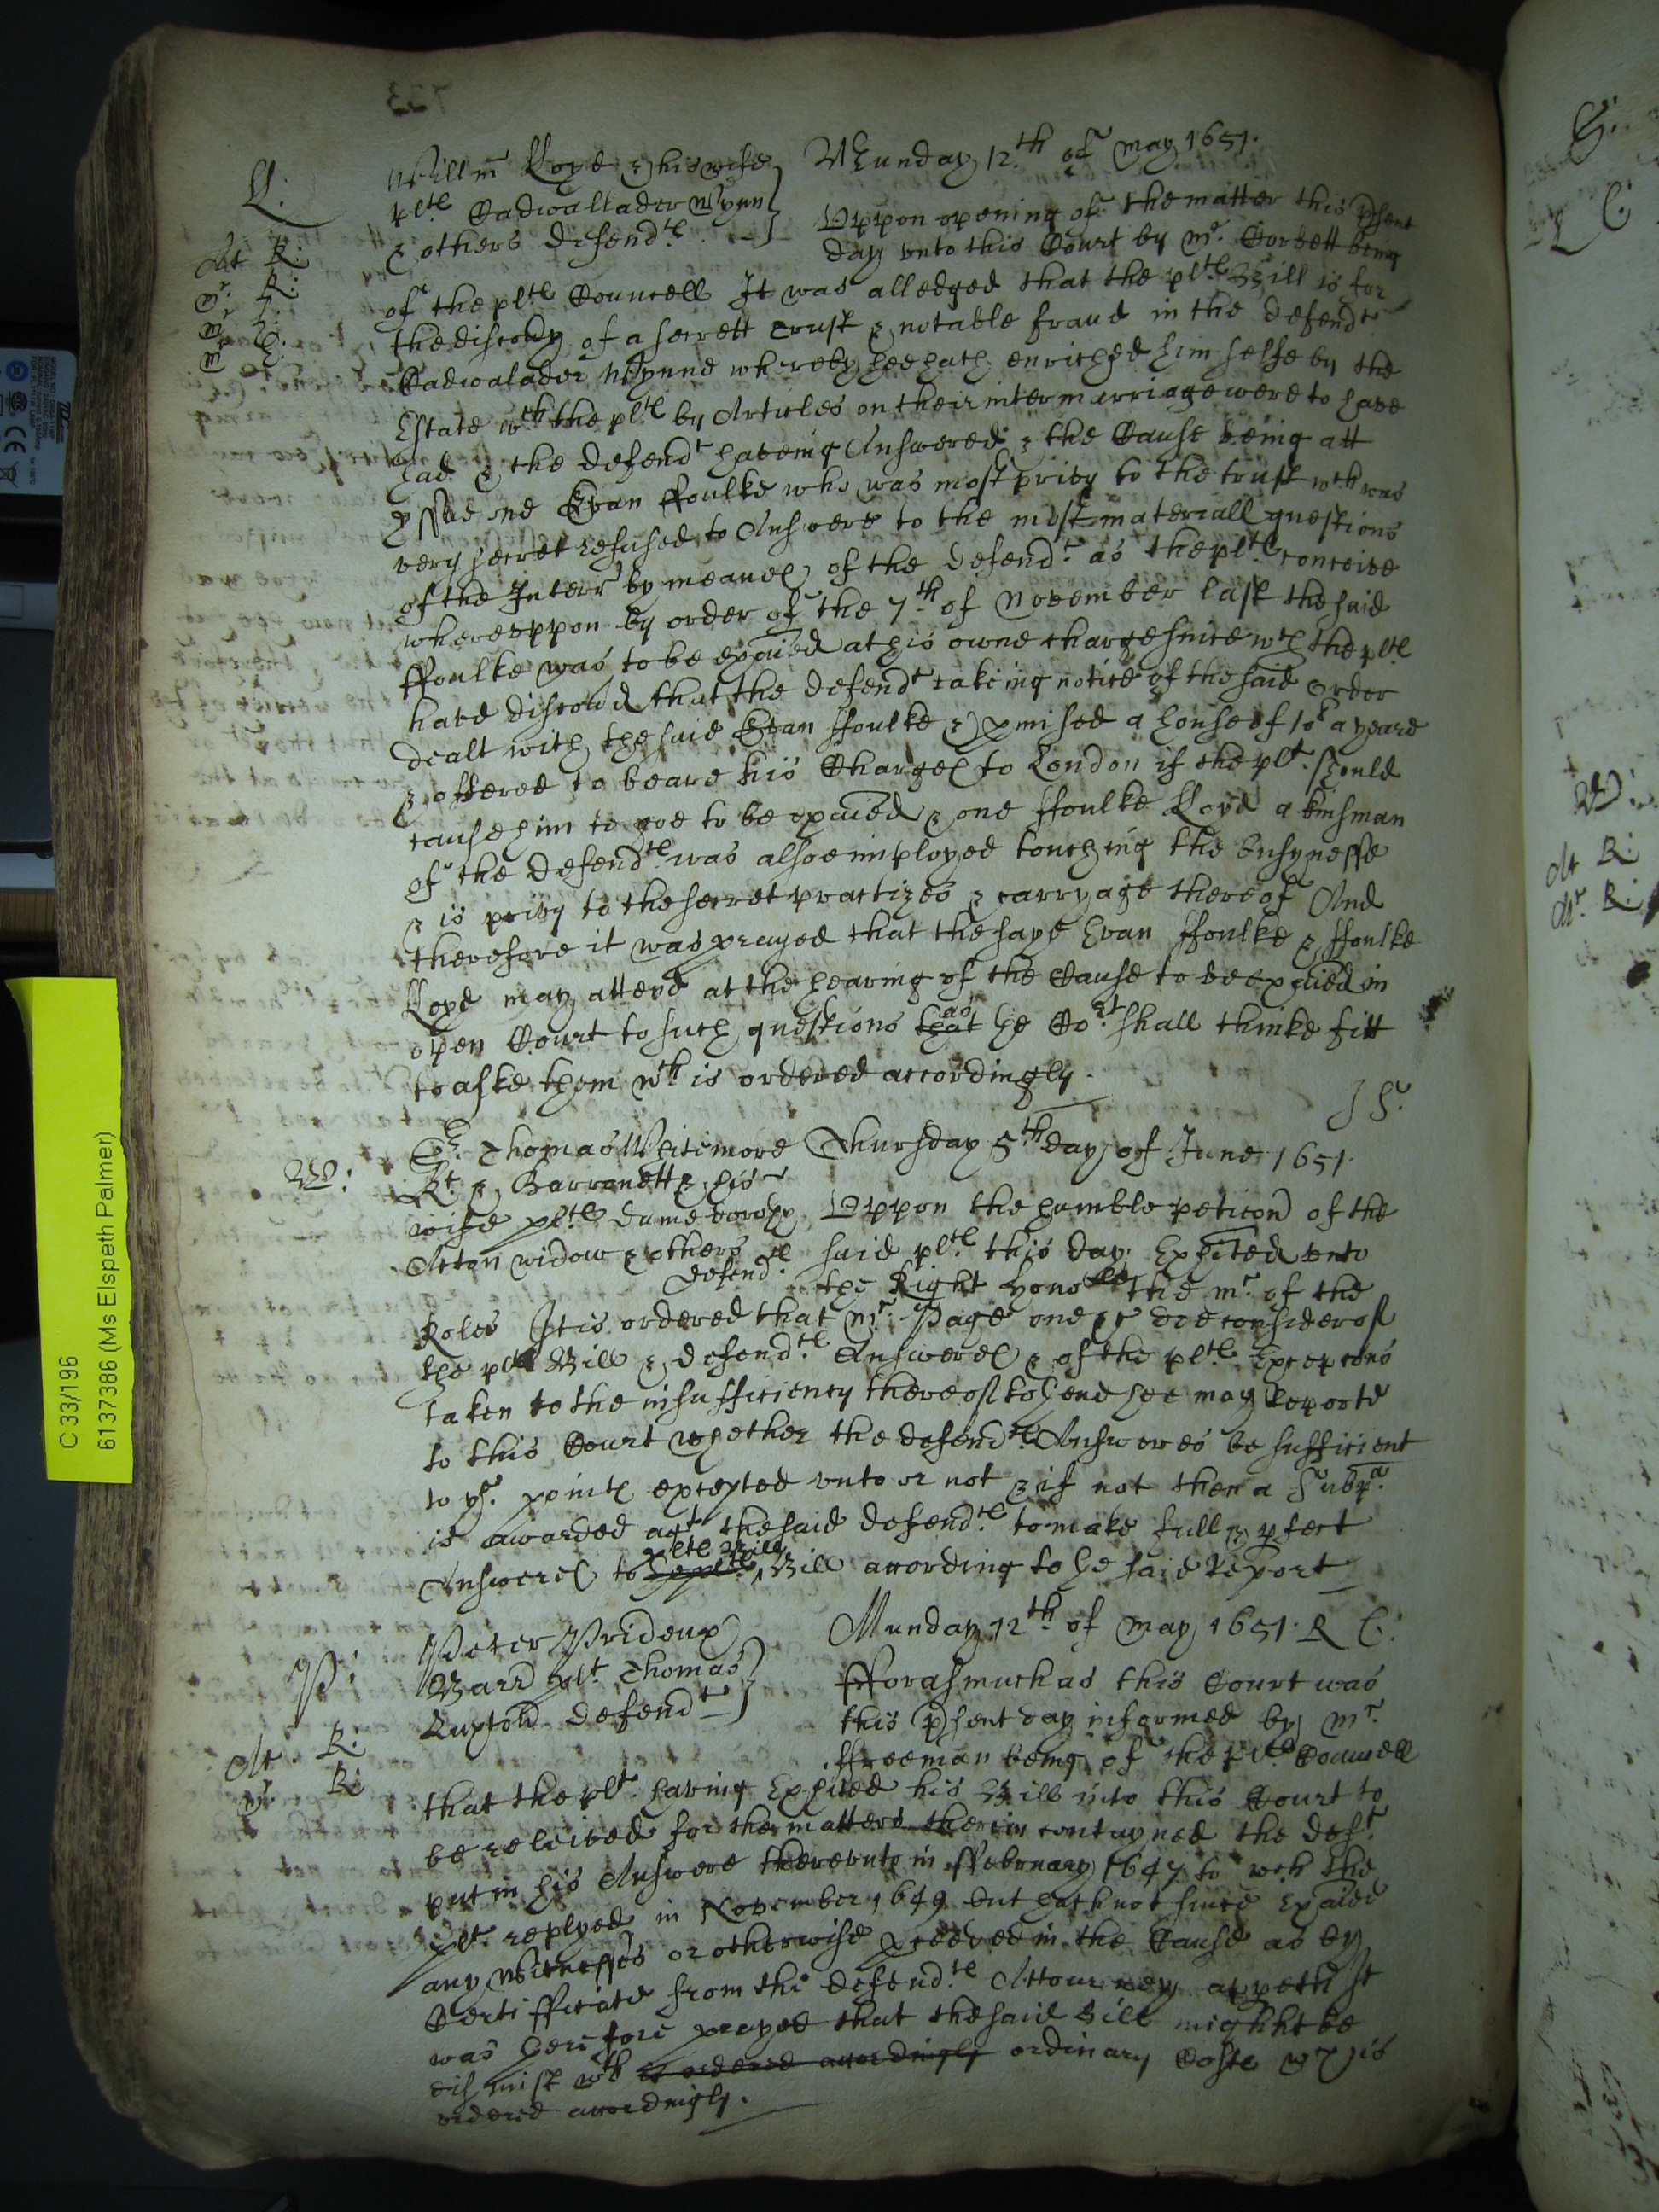 L:
Willm Loyd & his wife
pltes Cadwallader Wynn
& others defendtes
Munday 12th of May 1651.
Uppon opening of the matter this psent
day unto this Court by Mr. Corbett being
At R:
mr. R:
of the pltes Councell It was alledged that the pltes Bill is for
the discovy of a secrett trust & notable fraud in the defendt
Cadwalader Wynne whereby hee hath enriched him selfe by the
Estate wch the pltes by Articles on their intermarriage were to have
had & the defendt haveing Answered & the Cause being att
yssue one Evan ffoulke who was most privy to the trust wch was
very secret refused to Answere to the most materiall questions
of the Interr by meanes of the defendt. as the pltes conceive
whereuppon by order of the 7th of November last the said
ffoulke was to be exaied at his owne charge since wch the pltes
have discovd that the defendt takeing notice of the said order
dealt with the said Evan ffoulke & pmised a house of 10l a yeare
& offered to beare his Charges to London if the plt. should
cause him to goe to be exaied & one ffoulke Loyd a kinsman
of the defendtes was alsoe imployed touching the busynesse
& is privy to the secret practizes & carryage thereof And
therefore it was prayed that the sayd Evan ffoulke & ffoulke
Loyd may attend at the hearing of the Cause to be exaied in
open Court to such questions that as he Cort shall thinke fitt
to aske them wch is ordered accordingly.
W:
Sr. Thomas Whitmore
Kt. & Barronett & his
wife pltes dame dorothy
Acton widow & others
defendtes
JS.
Thursday 5th day of June 1651.
Uppon the humble peticon of the
said pltes this day Exhited unto
the Right Honoble the mr. of the
Roles It is ordered that Mr. Page one &c doe consider of
the pltes Bill & defendtes Answeres & of the pltes Excepcons
taken to the insufficiency thereof to thend hee may Reporte
to this Court whether the defendtes Answeres be sufficient
to ye. points excepted unto or not & if not then a Subpa.
is awarded agt the said defendtes to make full & pfect
Answeres to pltes Bill Bill according to he said Report
P:
Peter Prideux
Barr plt. Thomas
Luxton defendt
Munday 12th of May 1651. R C:
fforasmuch as this Court was
this psent day informed by Mr.
At R:
mr. R:
ffreeman being of the pltes Councell
that the plt. having Exhited his Bill into this Court to
be releived for the matters therein contayned the deft.
put in his Answere thereunto in ffebruary 1647 to wch the
plt. replyed in November 1649 but hath not since Exaied
any Witnesses or otherwise pceeded in the Cause as by
Certifficate from the defendtes Attourney appeth It
was therefore prayed that the said Bill mighht be
dismist wth is ordered accordingly ordinary Costes wch is
ordered accordingly.
C 33/196
6137386 (Ms Elspeth Palmer)